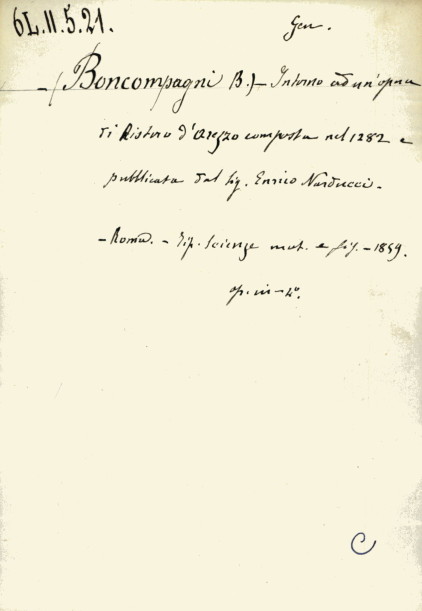 6L.II.5.21.
Gen.
- (Boncompagni B.) - Intorno ad un'opera
di Ristoro d'Arezzo composta nel 1282 e
pubblicata dal Sig. Enrico Narducci. -
- Roma. - Tip. Scienze mat. e fis. - 1859.
op. in - 4º.
C